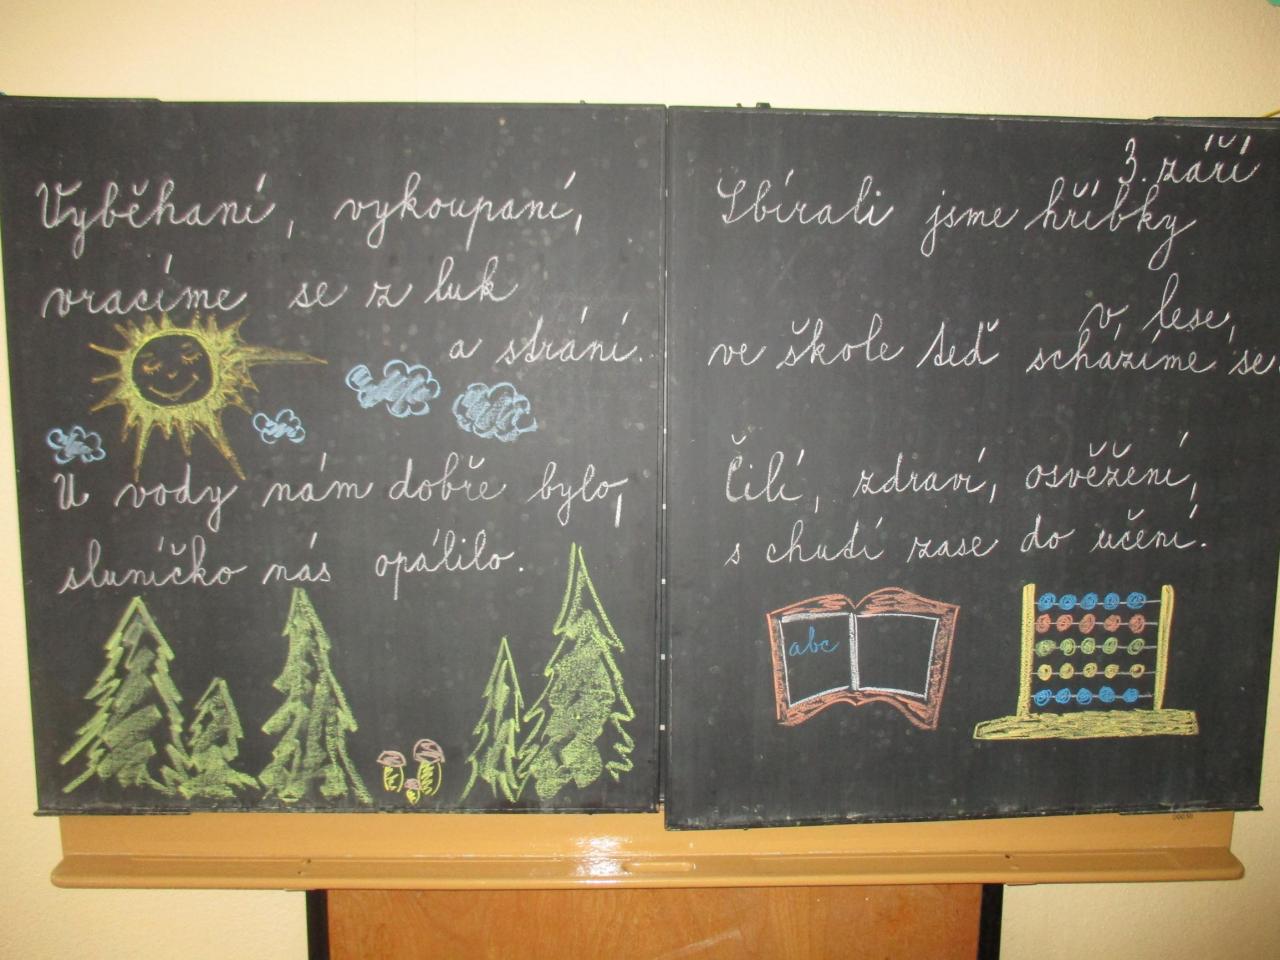 Vyběhaní, vykoupaní,
vracíme se z luk
a strání.
U vody nám dobře bylo,
sluníčko nás opálilo.
3. září
Sbírali jsme hříbky
v lese,
ve škole teď scházíme se.
Čilí, zdraví, osvěžení,
s chutí zase do učení.
abc